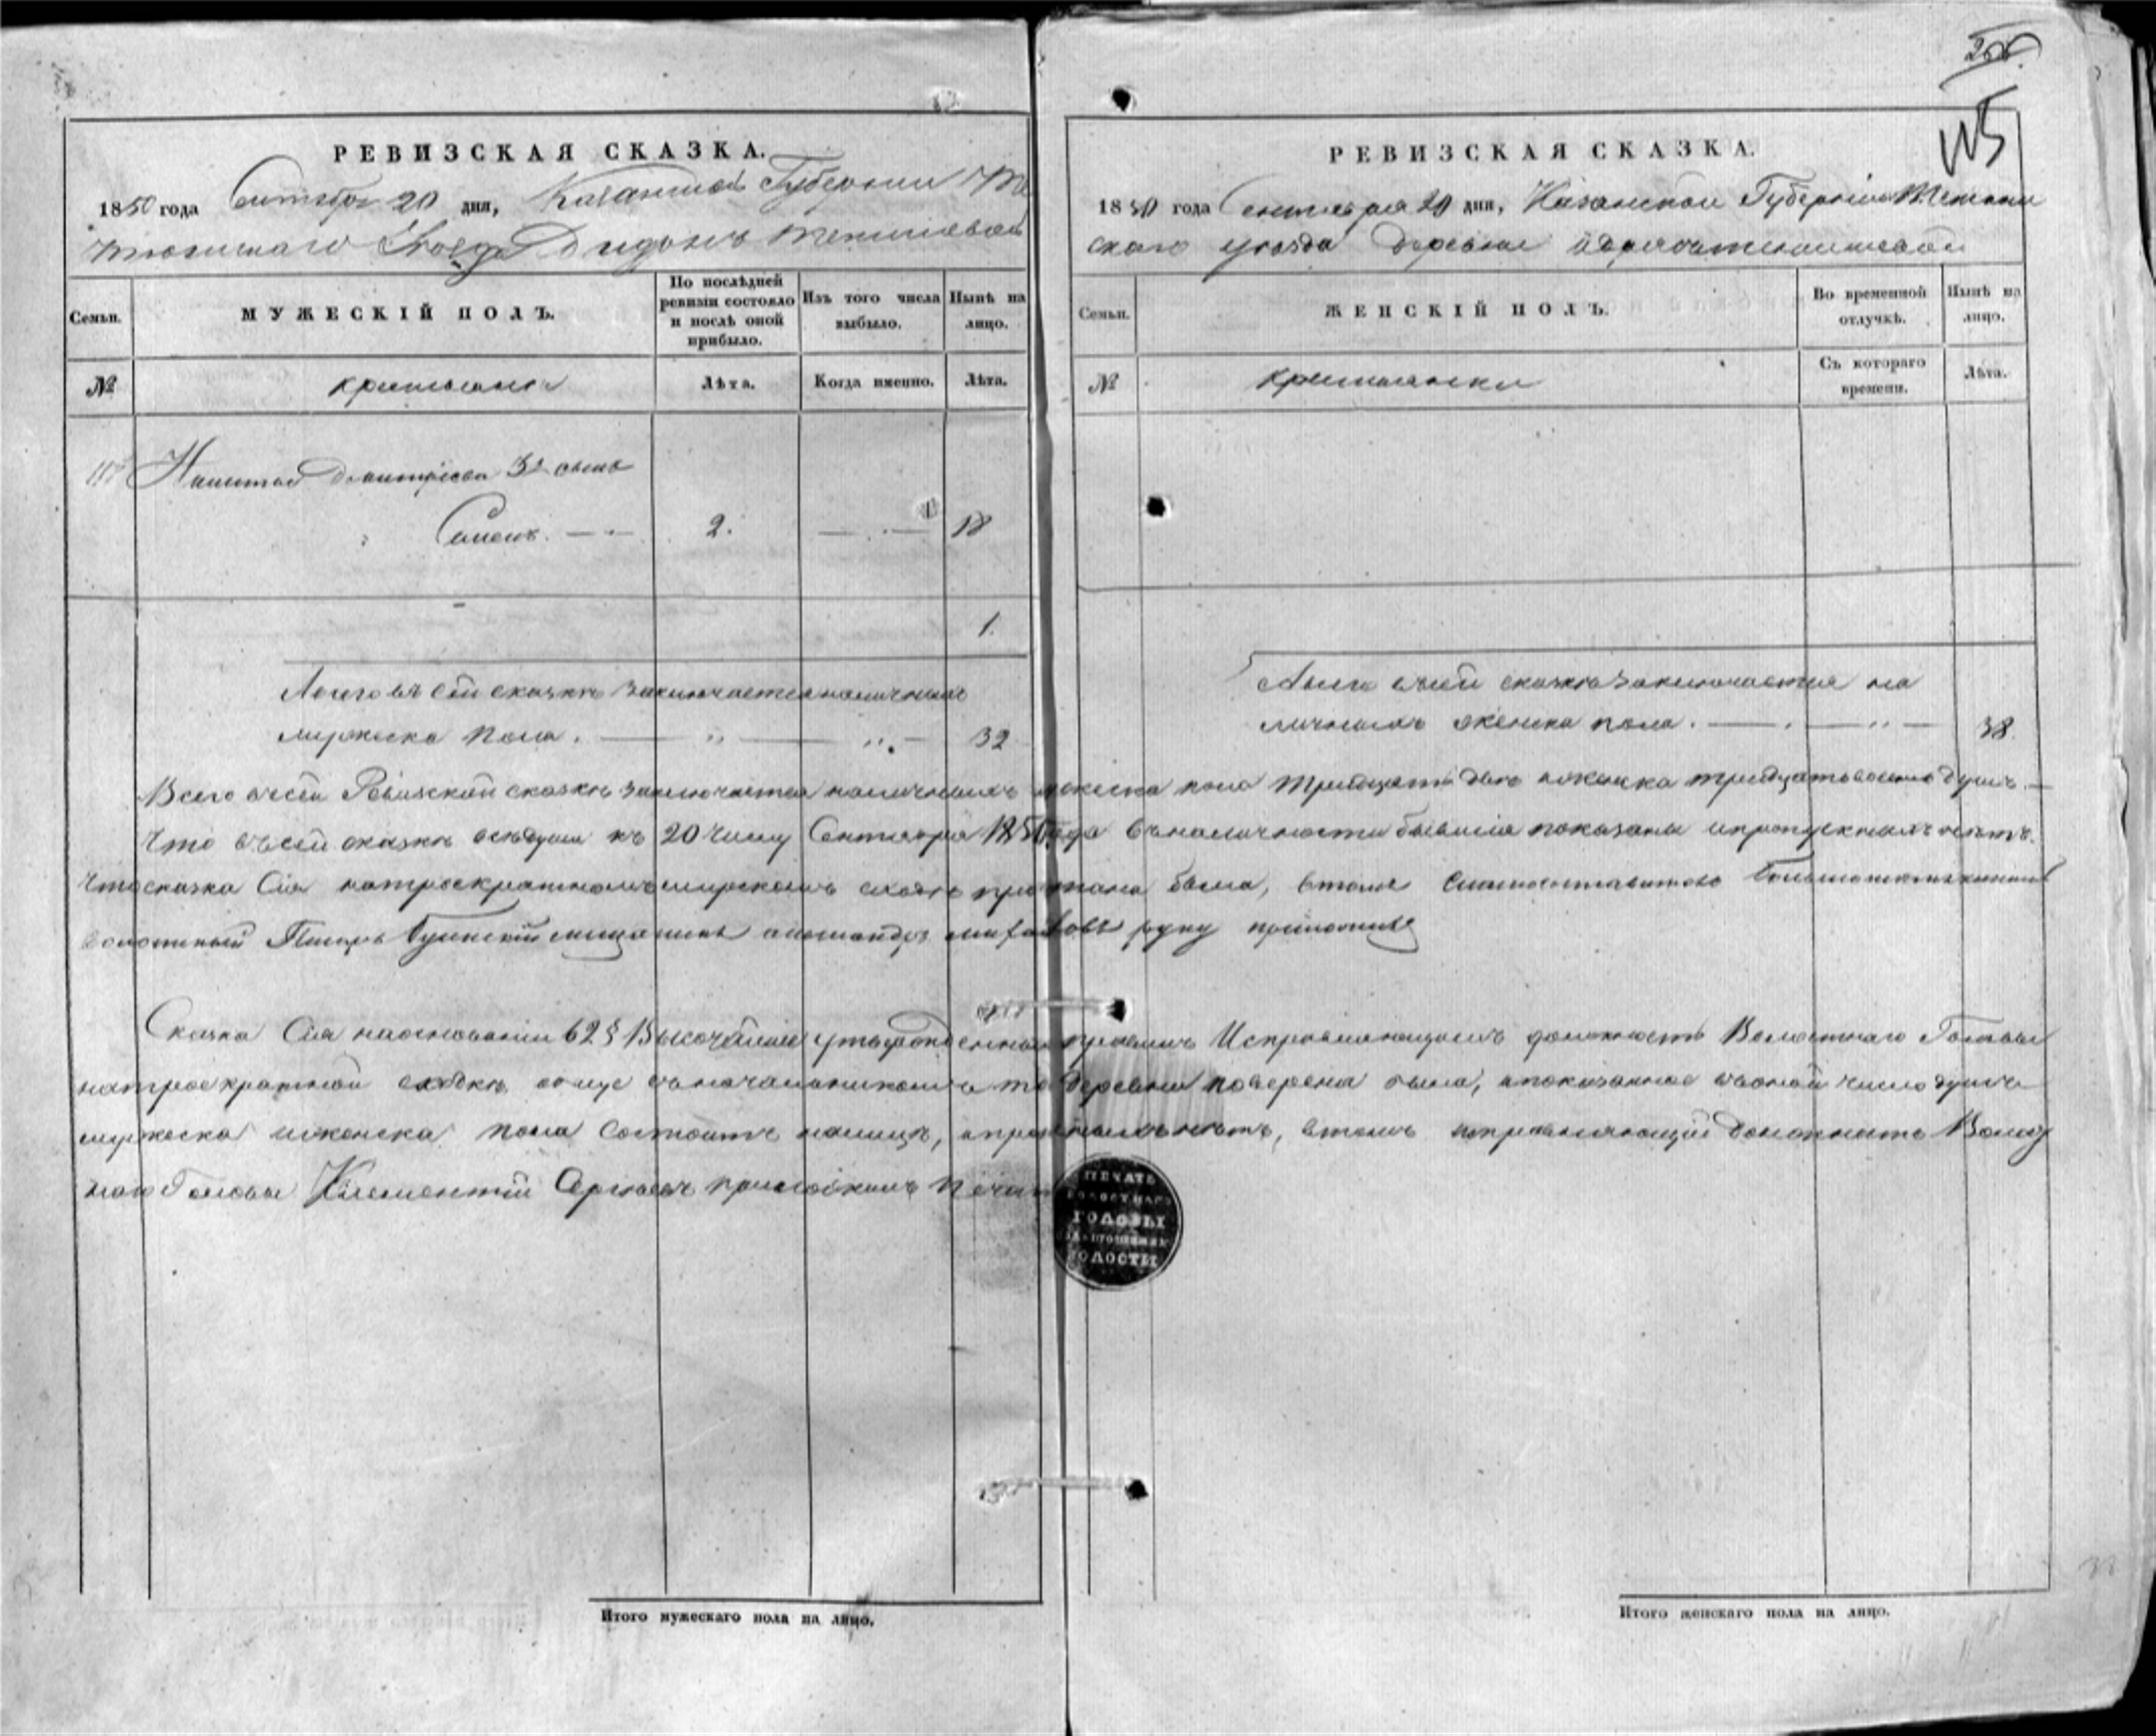 РЕВИЗСКАЯ СКАЗКА.
1850 года Сентября 20 дня, Казанской Губерніи Те
тюшскаго Уезда
Семьи.
МУЖЕСКІЙ ПОЛЪ.
По послѣдней ревизіи состояло и послѣ оной прибыло.
Изъ того числа выбыло.
Нынѣ на лицо.
№
крестьяне
Лѣта.
Когда именно.
Лѣта.
Дмитріева 3й сынъ
Семенъ. 2. 18
1.
Итого въ сей сказкѣ заключается наличныхъ
мужеска пола. 32
РЕВИЗСКАЯ СКАЗКА.
1850 года Сентября 20 дня, Казанской Губерніи Тетюш
скаго уезда деревни
Семьи.
ЖЕНСКІЙ ПОЛЪ.
Во временной отлучкѣ.
Нынѣ на лицо.
№
крестьянки
Съ котораго времени.
Лѣта.
Итого въ сей сказкѣ заключается на
личныхъ женска пола. 38.
Всего въ сей Ревизской сказкѣ заключается наличныхъ мужеска пола тридцать двѣ и женска тридцать восемь душъ.
Что въ сей сказкѣ все души къ 20 числу Сентября 1850 года въ наличности бывшія показаны и пропускныхъ нѣтъ.
Что сказка Сія на троекратномъ мирскомъ сходѣ прочитана была, в томъ
волостный Писарь мещанинъ руку приложилъ
Сказка Сія на основаніи 62 § Высочайше утвержденныхъ правилъ Исправляющимъ должность Волостнаго Головы
на троекратной сходкѣ деревни поверена была, и показанное въ оной число душъ
мужеска и женска пола состоитъ налицо, нѣтъ, в томъ исправляющій должность Волост
наго Головы Климентій Сергеевъ Печать
ПЕЧАТЬ
ВОЛОСТНАГО
ГОЛОВЫ
ВОЛОСТЫ
Итого мужескаго пола на лицо.
Итого женскаго пола на лицо.